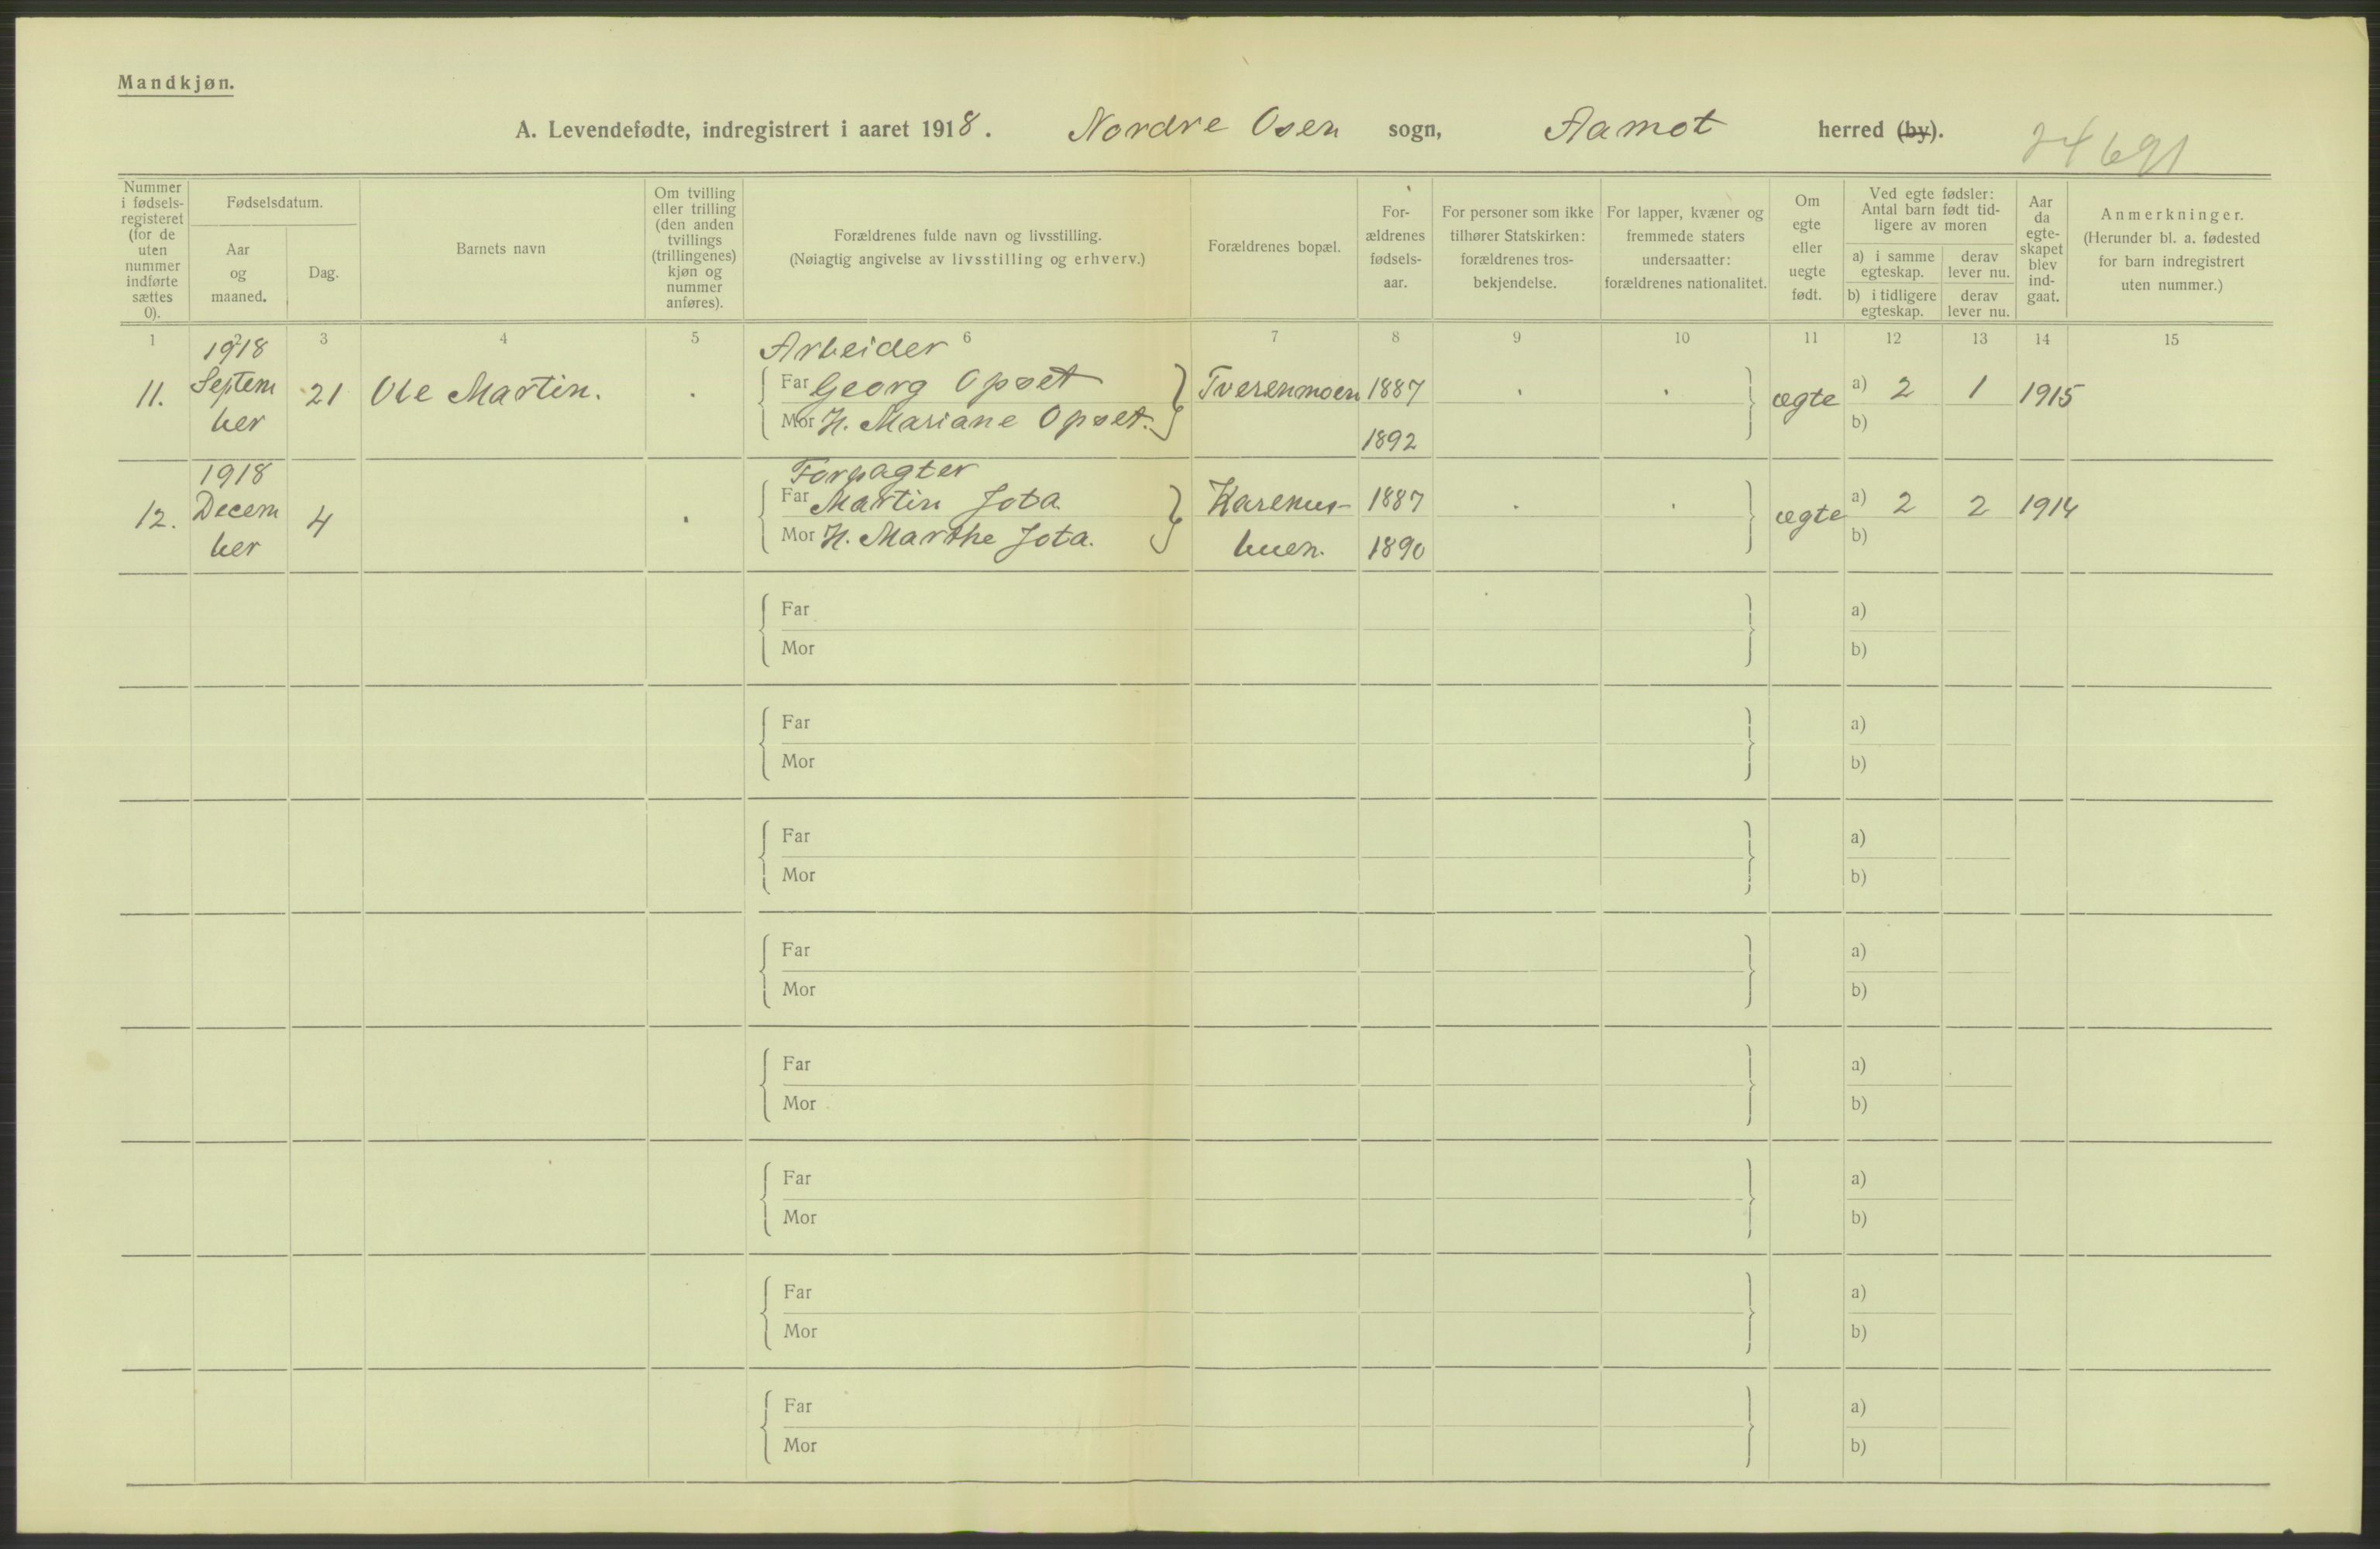 Mandkjøn.
A. Levendefødte, indregistrert i aaret 1918. Nordre Osen sogn, Aamot herred (by).
24691
Nummer i fødsels-registeret (for de uten nummer indførte sættes 0).
Fødselsdatum.
Aar og maaned.
Dag.
Barnets navn
Om tvilling eller trilling (den anden tvillings (trillingenes) kjøn og nummer anføres).
Forældrenes fulde navn og livsstilling.
(Nøiagtig angivelse av livsstilling og erhverv.)
Forældrenes bopæl.
For-ældrenes fødsels-aar.
For personer som ikke tilhører Statskirken: forældrenes tros-bekjendelse.
For lapper, kvæner og fremmede staters undersaatter: forældrenes nationalitet.
Om egte eller uegte født.
Ved egte fødsler: Antal barn født tid-ligere av moren
a) i samme egteskap.
derav lever nu.
b) i tidligere egteskap.
derav lever nu.
Aar da egte-skapet blev ind-gaat.
Anmerkninger.
(Herunder bl. a. fødested for barn indregistrert uten nummer.)
1 2 3 4 5 6 7 8 9 10 11 12 13 14 15
1918 Arbeider
11. Septem 21 Ole Martin. . Far Georg Opset Tverenmoen 1887 . . ægte a) 2 1 1915
ber Mor H. Mariane Opset. 1892 b)
1918 Forpagter
12. Decem 4 . Far Martin Jota. Karenus- 1887 . . ægte a) 2 2 1914
ber Mor H. Marthe Jota. buen. 1890 b)
Far a)
Mor b)
Far a)
Mor b)
Far a)
Mor b)
Far a)
Mor b)
Far a)
Mor b)
Far a)
Mor b)
Far a)
Mor b)
Far a)
Mor b)